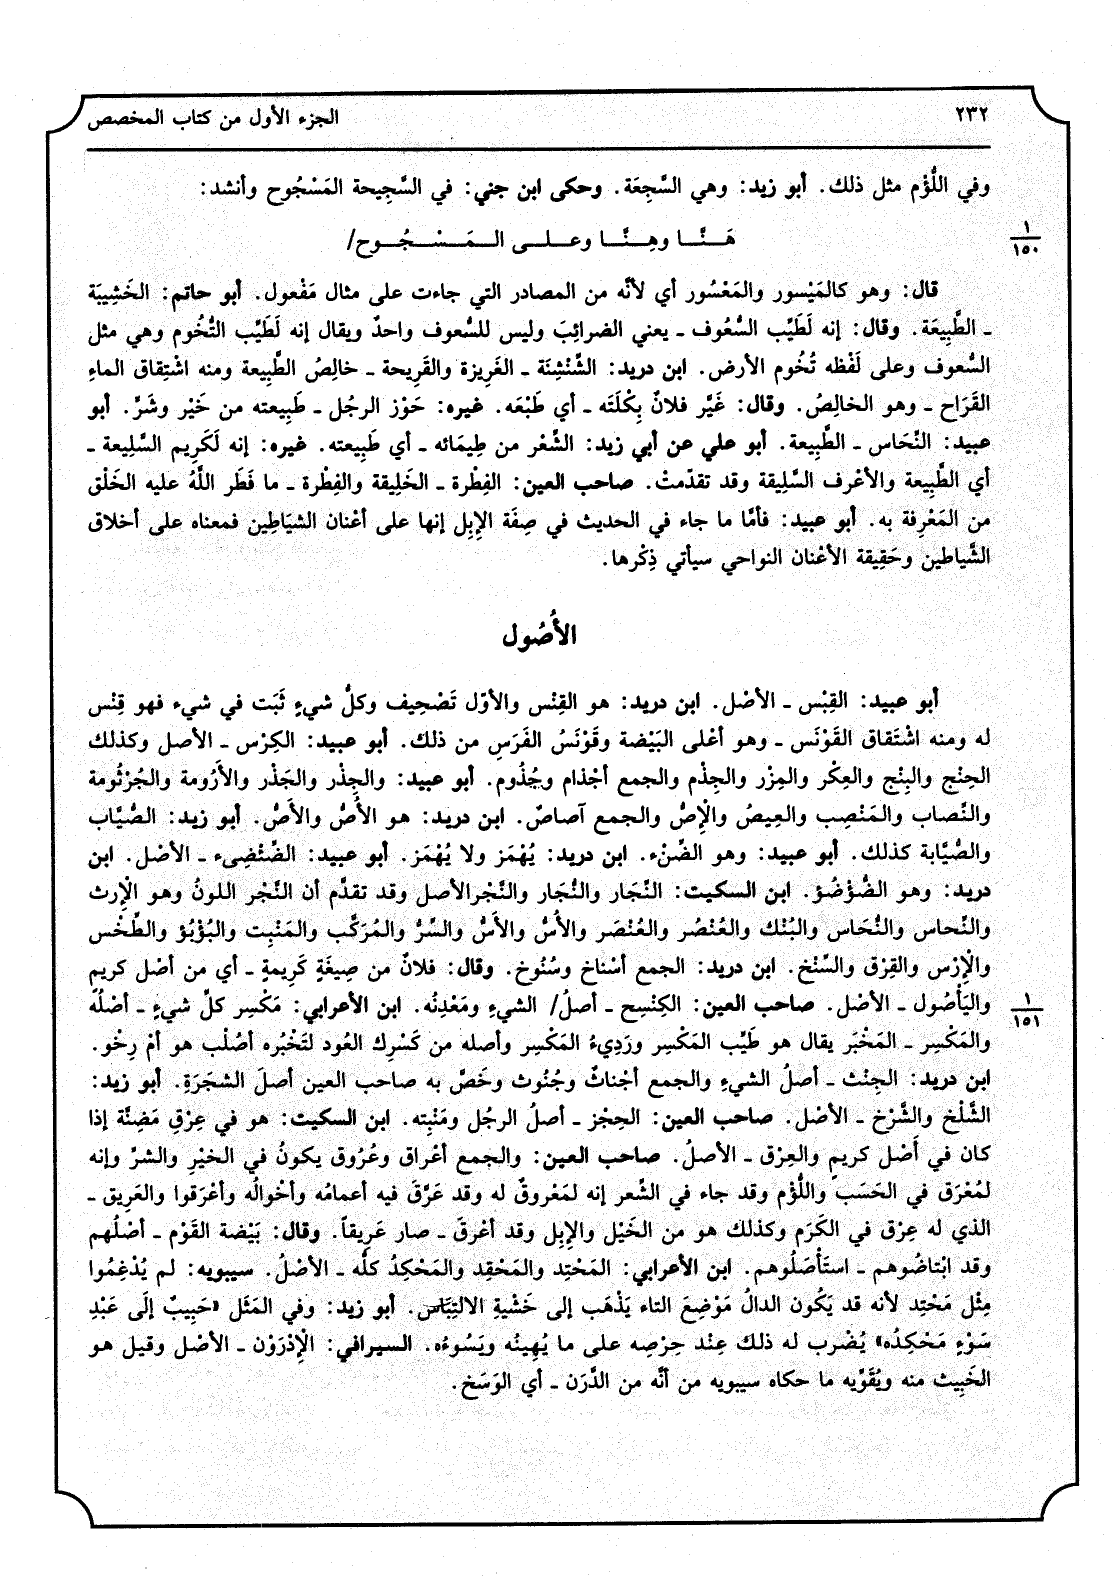 ٢٣٢
الجزء الأول من كتاب المخصص
وفي اللُّؤْم مثل ذلك. أبو زيد: وهي السَّجِعَة. وحكى ابن جني: في السَّجِيحة المَسْجُوح وأنشد:
هَـنَّـا وهِـنَّـا وعـلـى الـمَـسْـجُـوح/
١
١٥٠
قال: وهو كالمَيْسور والمَعْسُور أي لأنَّه من المصادر التي جاءت على مثال مَفْعول. أبو حاتم: الخَشِيبَة
ـ الطَّبِيعَة. وقال: إنه لَطَيِّب السُّعُوف ـ يعني الضرائِبَ وليس للسُّعوف واحدٌ ويقال إنه لَطَيِّب التُّخُوم وهي مثل
السُّعوف وعلى لَفْظه تُخُوم الأرض. ابن دريد: الشِّنْشِنَة ـ الغَرِيزة والقَرِيحة ـ خالِصُ الطَّبِيعة ومنه اشْتِقاق الماءِ
القَرَاح ـ وهو الخالِصُ. وقال: غَيَّر فلانٌ بِكْلَتَه ـ أي طَبْعَه. غيره: حَوْز الرجُل ـ طَبِيعته من خَيْر وشَرٍّ. أبو
عبيد: النِّحَاس ـ الطَّبِيعة. أبو علي عن أبي زيد: الشِّعْر من طِيمَائه ـ أي طَبِيعته. غيره: إنه لَكَرِيم السَّلِيعة ـ
أي الطَّبِيعة والأعْرف السَّلِيقة وقد تقدّمتْ. صاحب العين: الفِطْرة ـ الخَلِيقة والفِطْرة ـ ما فَطَر اللَّهُ عليه الخَلْق
من المَعْرِفة به. أبو عبيد: فأمَّا ما جاء في الحديث في صِفَة الإِبِل إنها على أعْنان الشيَاطِين فمعناه على أخلاق
الشَّياطين وحَقِيقة الأعْنان النواحي سيأتي ذِكْرها.
الأُصُول
أبو عبيد: القِبْس ـ الأصْل. ابن دريد: هو القِنْس والأوّل تَصْحِيف وكلُّ شيءٍ ثَبَت في شيء فهو قِنْس
له ومنه اشْتَقاق القَوْنَس ـ وهو أعْلى البَيْضة وقَوْنَسُ الفَرَسِ من ذلك. أبو عبيد: الكِرْس ـ الأصل وكذلك
الحِنْج والبِنْج والعِكْر والمِزْر والجِذْم والجمع أجْذام وجُذُوم. أبو عبيد: والجِذْر والجَذْر والأَرُومة والجُرْثُومة
والنِّصاب والمَنْصِب والعِيصُ والْإِصُّ والجمع آصاصٌ. ابن دريد: هو الأُصُّ والأَصُّ. أبو زيد: الصُّيَّاب
والصُّيَّابة كذلك. أبو عبيد: وهو الضِّنْء. ابن دريد: يُهْمَز ولا يُهْمَز. أبو عبيد: الضِّئْضِىء ـ الأصْل. ابن
دريد: وهو الضُّؤْضُؤ. ابن السكيت: النِّجَار والنُّجَار والنَّجْرالأصل وقد تقدَّم أن النَّجْر اللونُ وهو الْإِرث
والنِّحاس والنُّحَاس والبُنْك والعُنْصُر والعُنْصَر والأُسُّ والأَسُّ والسِّرُّ والمُرَكَّب والمَنْبِت والبُؤْبُؤ والطِّخْس
والْإِرْس والقِرْق والسِّنْخ. ابن دريد: الجمع أسْناخ وسُنُوخ. وقال: فلانٌ من صِيغَةٍ كَرِيمةٍ ـ أي من أصْل كريم
والتَأْصُول ـ الأصْل. صاحب العين: الكِنْسِح ـ أصلُ/ الشيءِ ومَعْدِنُه. ابن الأعرابي: مَكْسِر كلِّ شيءٍ ـ أصْلُه
١
١٥١
والمَكْسِر ـ المَخْبَر يقال هو طَيِّب المَكْسِر ورَدِيءُ المَكْسِر وأصله من كَسْرِك العُود لتَخْبُره أصُلْب هو أمْ رِخْو.
ابن دريد: الجِنْث ـ أصلُ الشيءِ والجمع أجْناثٌ وجُنُوث وخَصَّ به صاحب العين أصلَ الشجَرَةِ. أبو زيد:
الشَّلْخ والشَّرْخ ـ الأصْل. صاحب العين: الحِجْز ـ أصلُ الرجُل ومَنْبِته. ابن السكيت: هو في عِرْقِ مَضِنَّة إذا
كان في أَصْل كريمٍ والعِرْق ـ الأصلُ. صاحب العين: والجمع أعْراق وعُرُوق يكونُ في الخيْرِ والشرِّ وإنه
لمُعْرَق في الحَسَب واللُّؤْم وقد جاء في الشِّعر إنه لمَعْروقٌ له وقد عَرَّقَ فيه أعمامُه وأخْوالُه وأعْرَقوا والعَرِيق ـ
الذي له عِرْق في الكَرَم وكذلك هو من الخَيْل والإِبِل وقد أعْرقَ ـ صار عَرِيقاً. وقال: بَيْضة القَوْم ـ أصْلُهم
وقد ابْتاضُوهم ـ استَأْصَلُوهم. ابن الأعرابي: المَحْتِد والمَحْقِد والمَحْكِدُ كلُّه ـ الأصْلُ. سيبويه: لم يُدْغِمُوا
مِثْل مَحْتِد لأنه قد يَكُون الدالُ مَوْضِعَ التاء يَذْهَب إلى خَشْيةِ الالتِبَاس. أبو زيد: وفي المَثَل «حَبِيبٌ إلَى عَبْدِ
سَوْءٍ مَحْكِدُه» يُضْرب له ذلك عِنْد حِرْصِه على ما يُهِينُه ويَسُوءُه. السيرافي: الْإِدْرَوْن ـ الأصْل وقيل هو
الخَبِيث منه ويُقَوِّيه ما حكاه سيبويه من أنَّه من الدَّرَن ـ أي الوَسَخ.